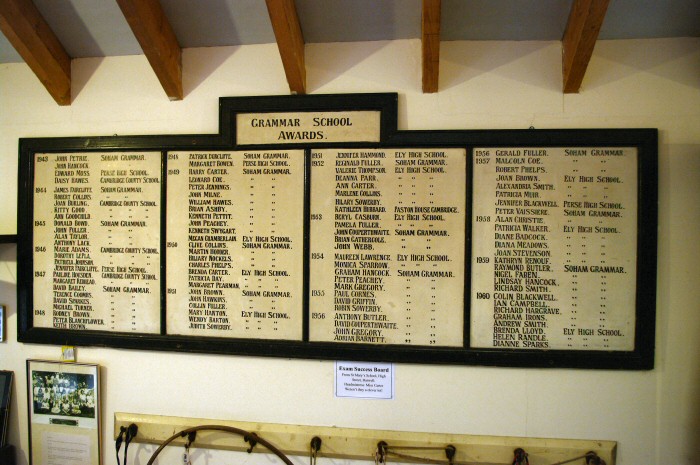 GRAMMAR SCHOOL
AWARDS.
1943 JOHN PETRIE. SOHAM GRAMMAR.
JOHN HANCOCK. " "
EDWARD MOSS. PERSE HIGH SCHOOL.
DAISY HAWES. CAMBRIDGE COUNTY SCHOOL.
1944 JAMES FAIRCLIFFE. SOHAM GRAMMAR.
ROBERT COLLINS. " "
JOAN DURLING. CAMBRIDGE COUNTY SCHOOL.
KITTY GOOD " "
ANN GOODCHILD " "
1945 DONALD CORNES. SOHAM GRAMMAR.
JOHN FULLER. " "
ALAN TAYLOR. " "
ANTHONY LACK " "
1946 MARIE ADAMS. CAMBRIDGE COUNTY SCHOOL.
DOROTHY LEPLA. " "
PATRICIA JOHNSON. " "
JENNIFER FAIRCLIFFE. PERSE HIGH SCHOOL.
1947 PAULINE HOUSDEN. CAMBRIDGE COUNTY SCHOOL.
MARGARET REDHEAD. " "
DAVID BAILEY. SOHAM GRAMMAR.
TERENCE CORNES. " "
DAVID SPARKES. " "
MICHAEL TURNER. " "
1948 RODNEY BROWN. " "
PETER BLANCHFLOWER. " "
KEITH BROWN. " "
1948 PATRICK FAIRCLIFFE. SOHAM GRAMMAR.
MARGARET BOWEN. PERSE HIGH SCHOOL.
1949 HARRY CARTER. SOHAM GRAMMAR.
LEONARD COE. " "
PETER JENNINGS. " "
JOHN MILNE. " "
WILLIAM HAWES. " "
BRIAN ASHBY. " "
KENNETH PETTIT. " "
JOHN PEACHEY. " "
KENNETH SWYGART. " "
MEGAN CHAMBERLAIN. ELY HIGH SCHOOL.
1950 CLIVE COLLINS. SOHAM GRAMMAR.
MARTIN RODBER. " "
HILARY NOCKELS. " "
CHARLES PHELPS. " "
BRENDA CARTER. ELY HIGH SCHOOL.
PATRICIA DAY. " "
MARGARET PEARMAN. " "
1951 JOHN BROWN. SOHAM GRAMMAR.
JOHN HAWKINS. " "
COLLIN FULLER. " "
MARY HANTON. ELY HIGH SCHOOL.
WENDY BARTON. " "
JUDITH SOWERBY. " "
1951 JENNIFER HAMMOND. ELY HIGH SCHOOL.
1952 REGINALD FULLER. SOHAM GRAMMAR.
VALERIE THOMPSON. ELY HIGH SCHOOL.
DEANNA PARR. " "
ANN CARTER. " "
MARLENE COLLINS. " "
HILARY SOWERBY. " "
KATHLEEN HUBBARD. PASTON HOUSE CAMBRIDGE.
1953 BERYL CASBURN. ELY HIGH SCHOOL.
PAMELA FULLER. " "
JOHN COOPERTHWAITE. SOHAM GRAMMAR.
BRIAN GATHERCOLE. " "
JOHN WEBB. " "
1954 MAUREEN LAWRENCE. ELY HIGH SCHOOL.
MONICA SPARROW. " "
GRAHAM HANCOCK SOHAM GRAMMAR.
PETER PEACHEY. " "
MARK GREGORY. " "
1955 PAUL CORNES. " "
DAVID GRIFFIN. " "
ROBIN SOWERBY. " "
1956 ANTHONY BUTLER. " "
DAVID COOPERTHWAITE. " "
JOHN GREGORY. " "
ADRIAN BARNETT. " "
1956 GERALD FULLER. SOHAM GRAMMAR.
1957 MALCOLM COE. " "
ROBERT PHELPS. " "
JOAN BROWN. ELY HIGH SCHOOL.
ALEXANDRIA SMITH. " "
PATRICIA MUIR. " "
JENNIFER BLACKWELL. PERSE HIGH SCHOOL.
PETER VAYSSIERE. SOHAM GRAMMAR.
1958 ALAN CHRISTIE. " "
PATRICIA WALKER. ELY HIGH SCHOOL.
DIANE BADCOCK. " "
DIANA MEADOWS. " "
JOAN STEVENSON. " "
1959 KATHRYN RENOUF. " "
RAYMOND BUTLER. SOHAM GRAMMAR.
NIGEL FABEN. " "
HANCOCK LINDSAY. " "
RICHARD SMITH. " "
1960 COLIN BLACKWELL. " "
IAN CAMPBELL. " "
RICHARD HARGRAVE. " "
GRAHAM IRONS. " "
ANDREW SMITH. " "
BRENDA LLOYD. ELY HIGH SCHOOL.
HELEN RANDLE. " "
DIANNE SPARKS. " "
Exam Success Board
From St Mary's School, High
Street, Burwell.
Headmistress: Miss Carter
Weren't they a clever lot!